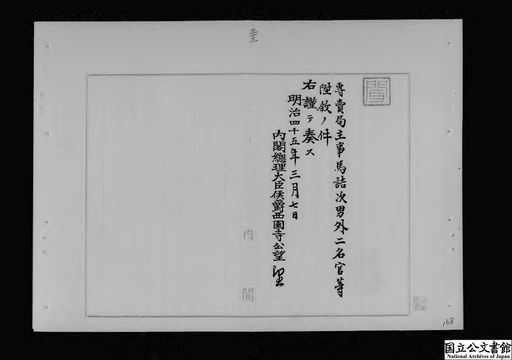 専賣局主事馬詰次男外二名官等
陞敘ノ件
右謹テ奏ス
明治四十五年三月七日
内閣總理大臣侯爵西園寺公望
内閣
168
国立公文書館
National Archives of Japan